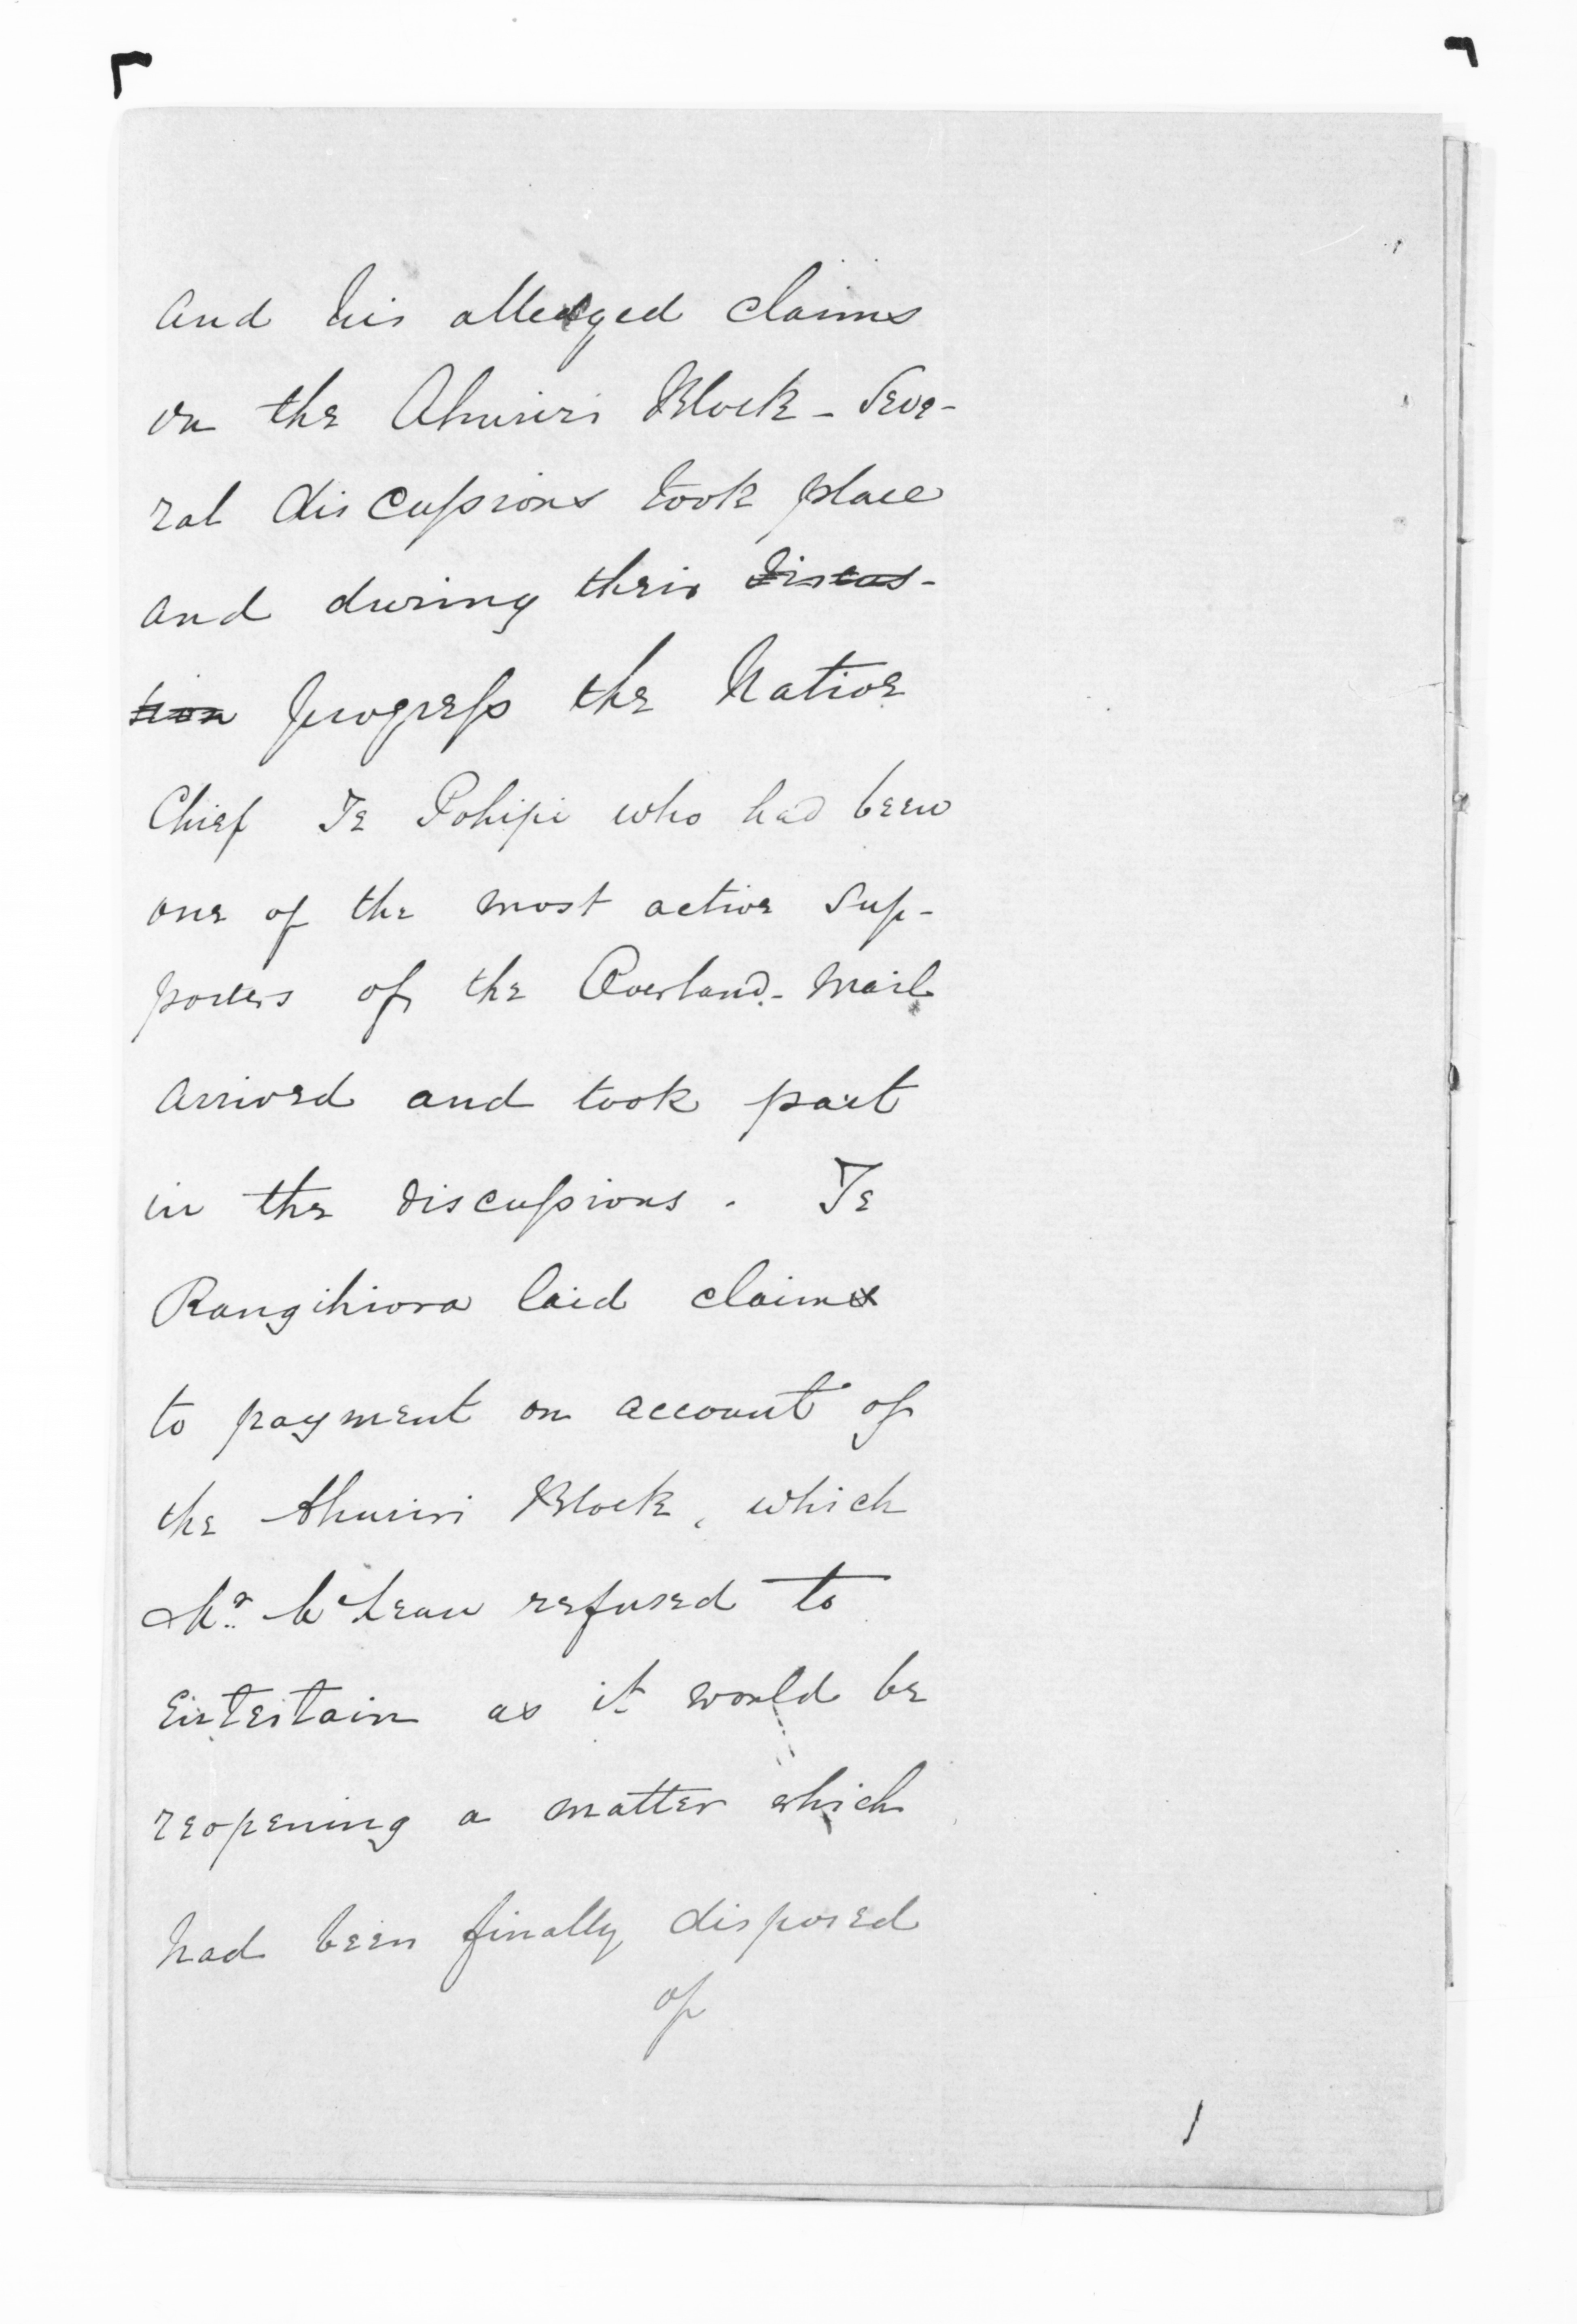 and his alledged claims
on the Ahuriri Block - Seve-
ral discussions took place
and during their discus-
sion progress the Native
Chief Te Pohipi who had been
one of the most active sup-
porters of the Overland-Mail
arrived and took part
in the discussions. Te
Rangihiroa laid claims
to payment on account of
the Ahuriri Block, which
Mr. McLean refused to
Entertain as it would be
reopening a matter which
had been finally disposed
of